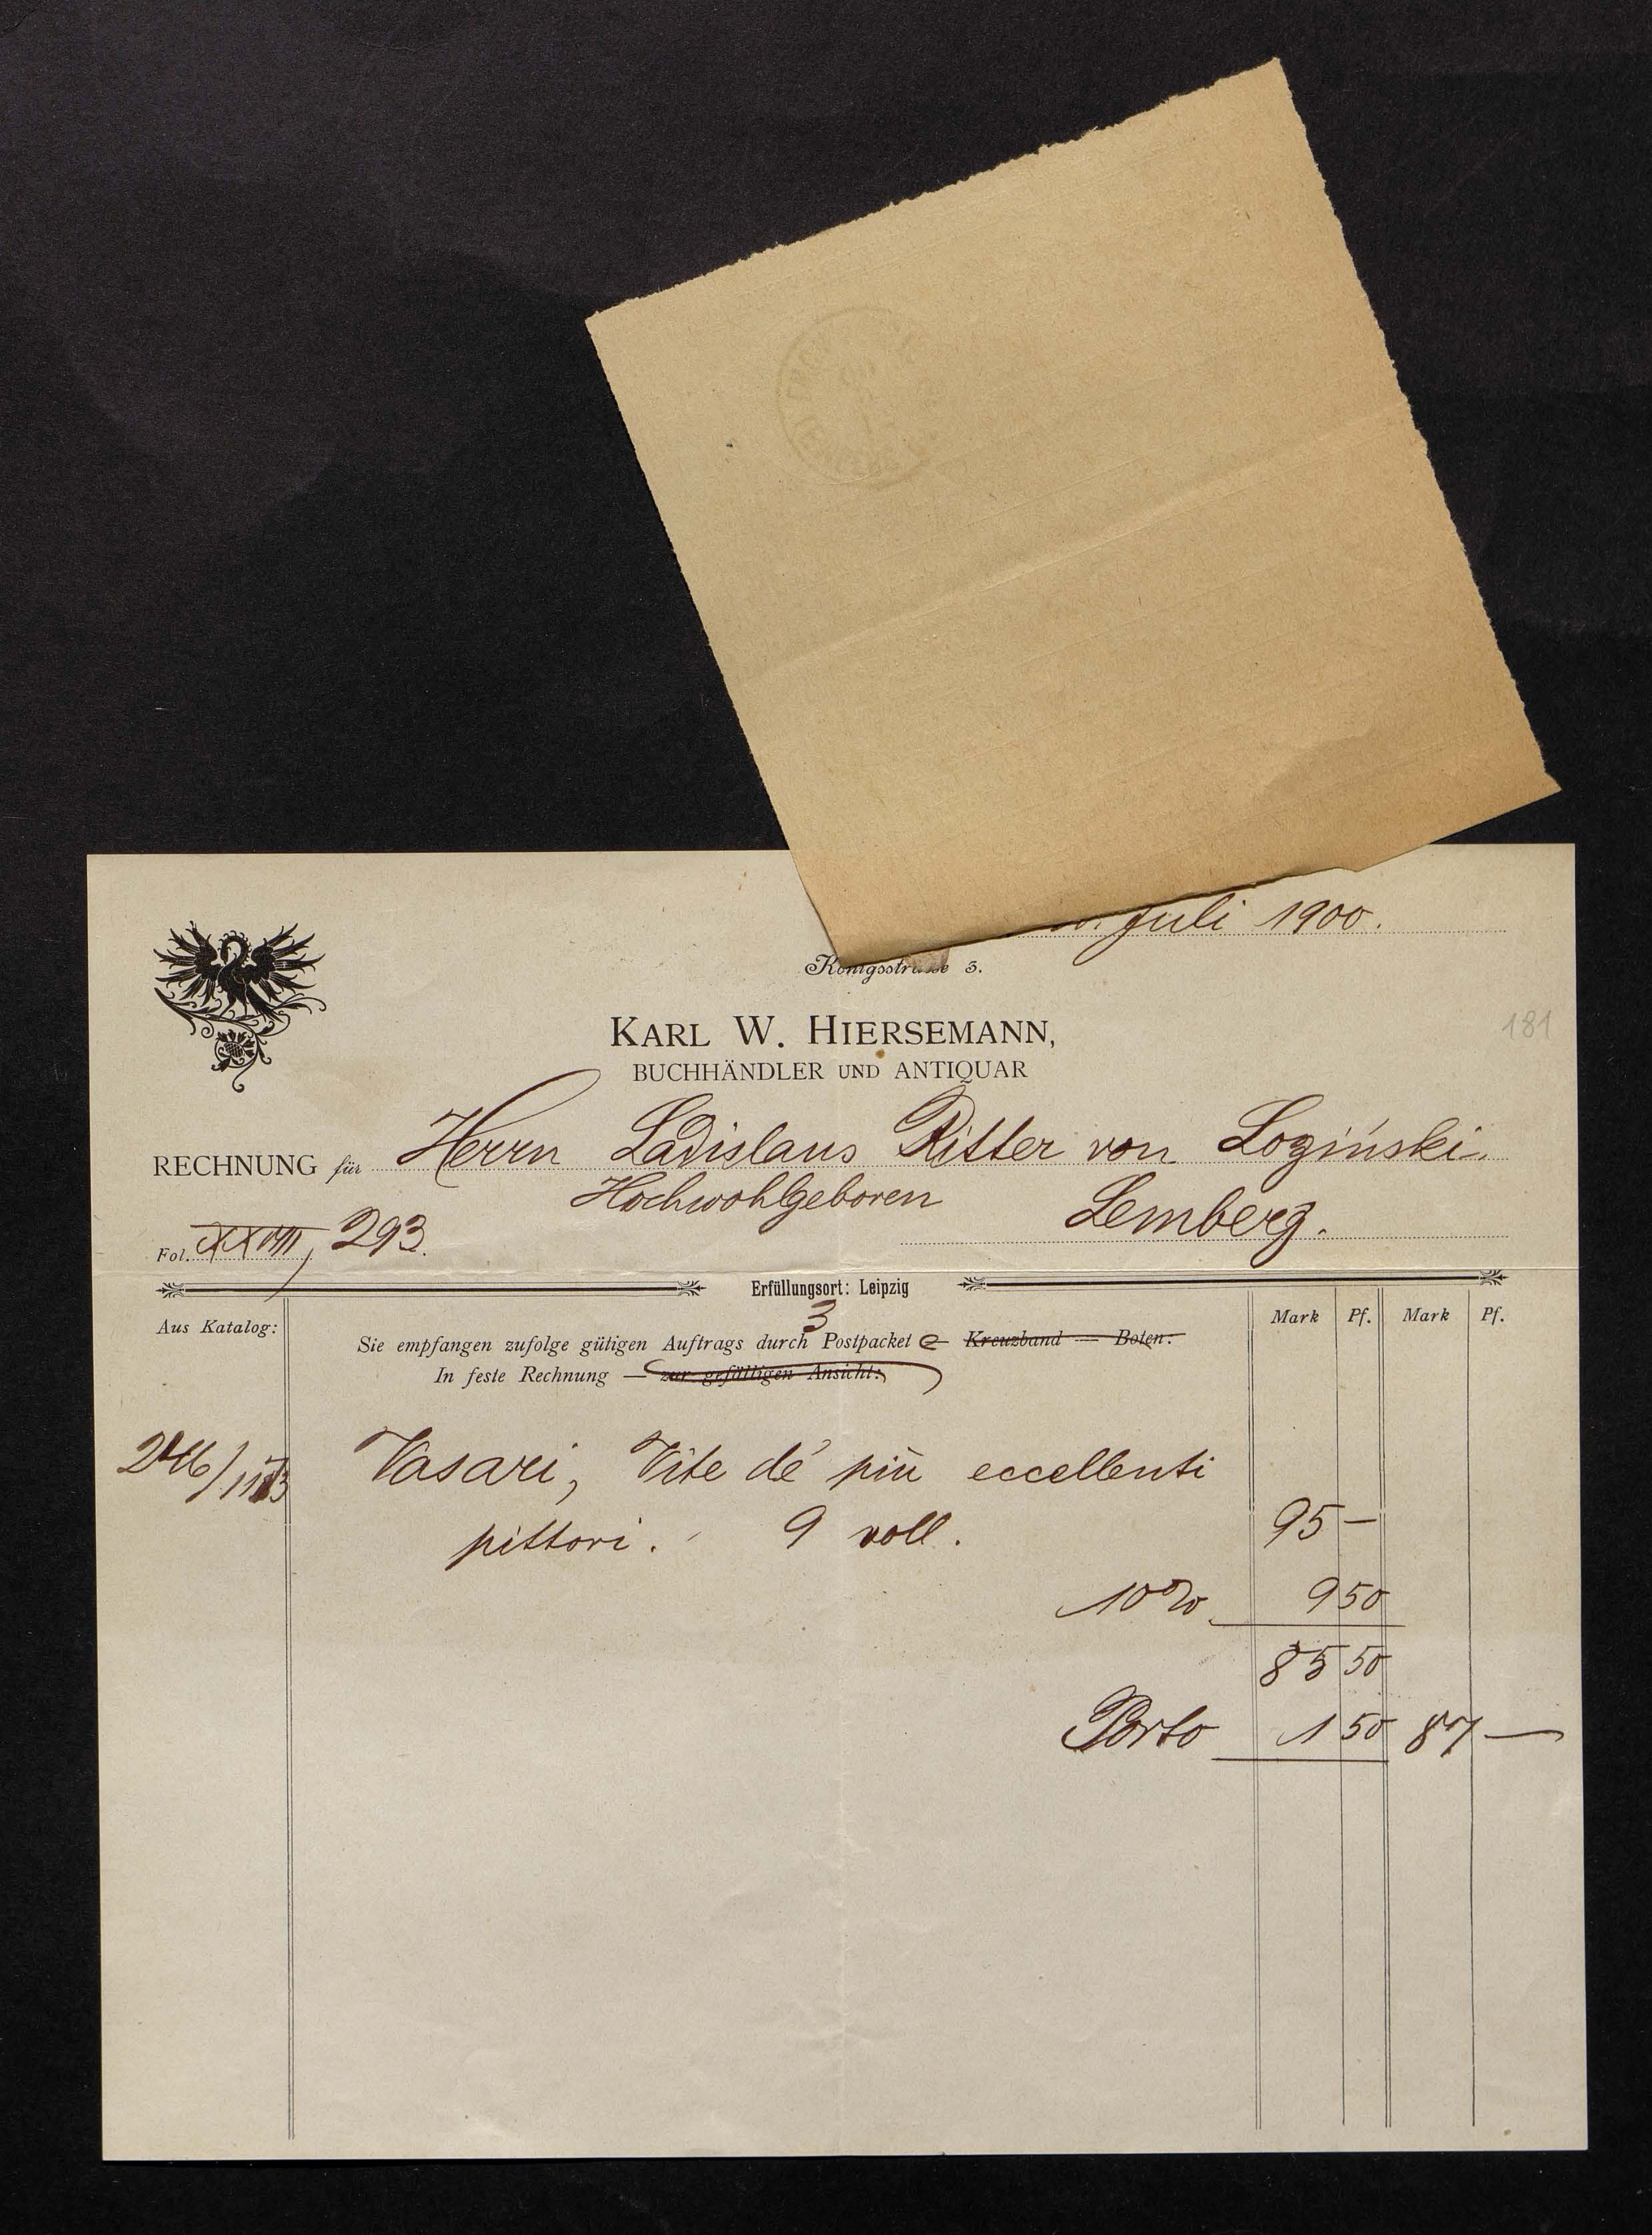 Juli 1900.
Königsstrasse 3.
KARL W. HIERSEMANN,
BUCHHÄNDLER UND ANTIQUAR
181
RECHNUNG für Herrn Ladislaus Ritter von Loziński.
Hochwohlgeboren Lemberg.
Fol. XXVIII, 293.
Erfüllungsort: Leipzig
Aus Katalog: Mark Pf. Mark Pf.
3
Sie empfangen zufolge gütigen Auftrags durch Postpackete Kreuzband — Boten:
In feste Rechnung — zur gefälligen Ansicht:
Vasari, Vite de' più eccellenti
pittori. 9 voll. 95 —
10% 9 50
85 50
Porto 1 50 87 —